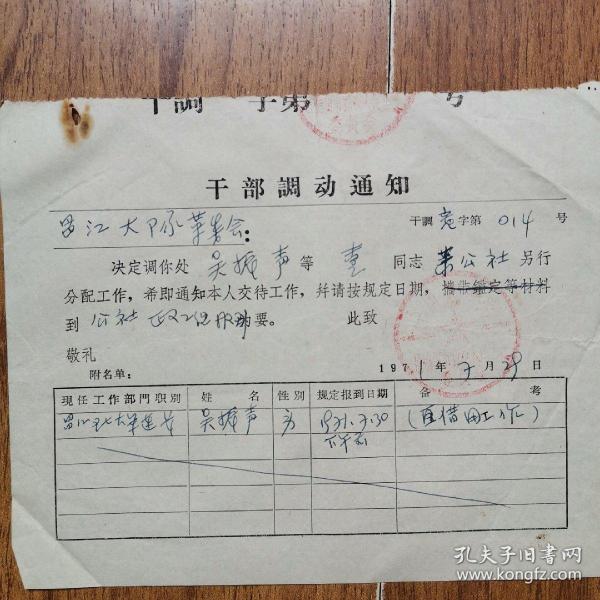 干調 字第 号
干部調动通知
罗江大队革委会:
干調 字第 014 号
决定调你处 吴振声 等 壹 同志 来公社 另行
分配工作，希即通知本人交待工作，并请按规定日期，携带鑑定等材料
到 公社 政工组报 要。 此致
敬礼
1971年7月29日
附名单:
現任工作部門职別 姓名 性別 規定报到日期 备考
吴振声 男 1971.7.30
下午 (借用工作)
孔夫子旧书网
www.kongfz.com